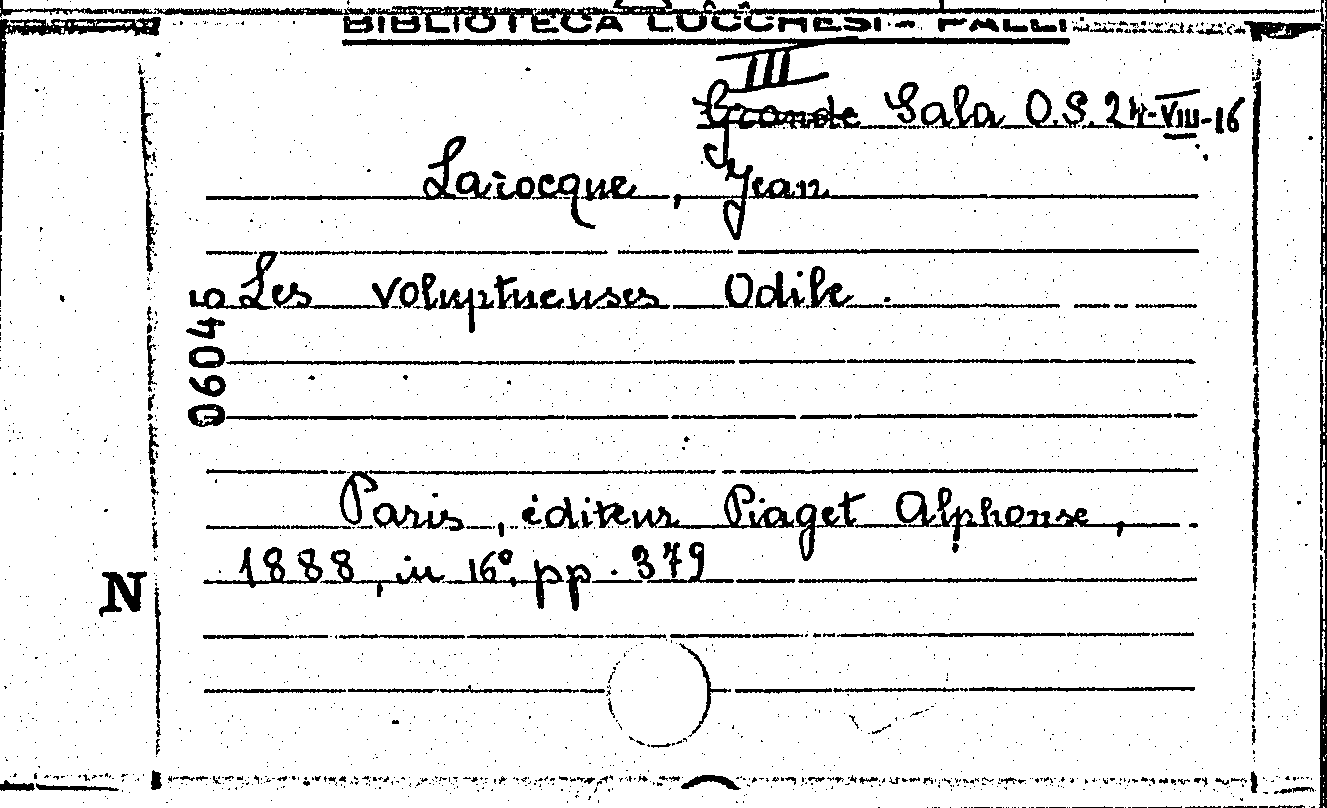 BIBLIOTECA LUCCHESI - PALLI
III
Grande Sala O.S. 24-VIII-16
Larocque, Jean
Les voluptueuses Odile.
06045
Paris, éditeur Piaget Alphonse,
1888, in 16°, pp. 379
N